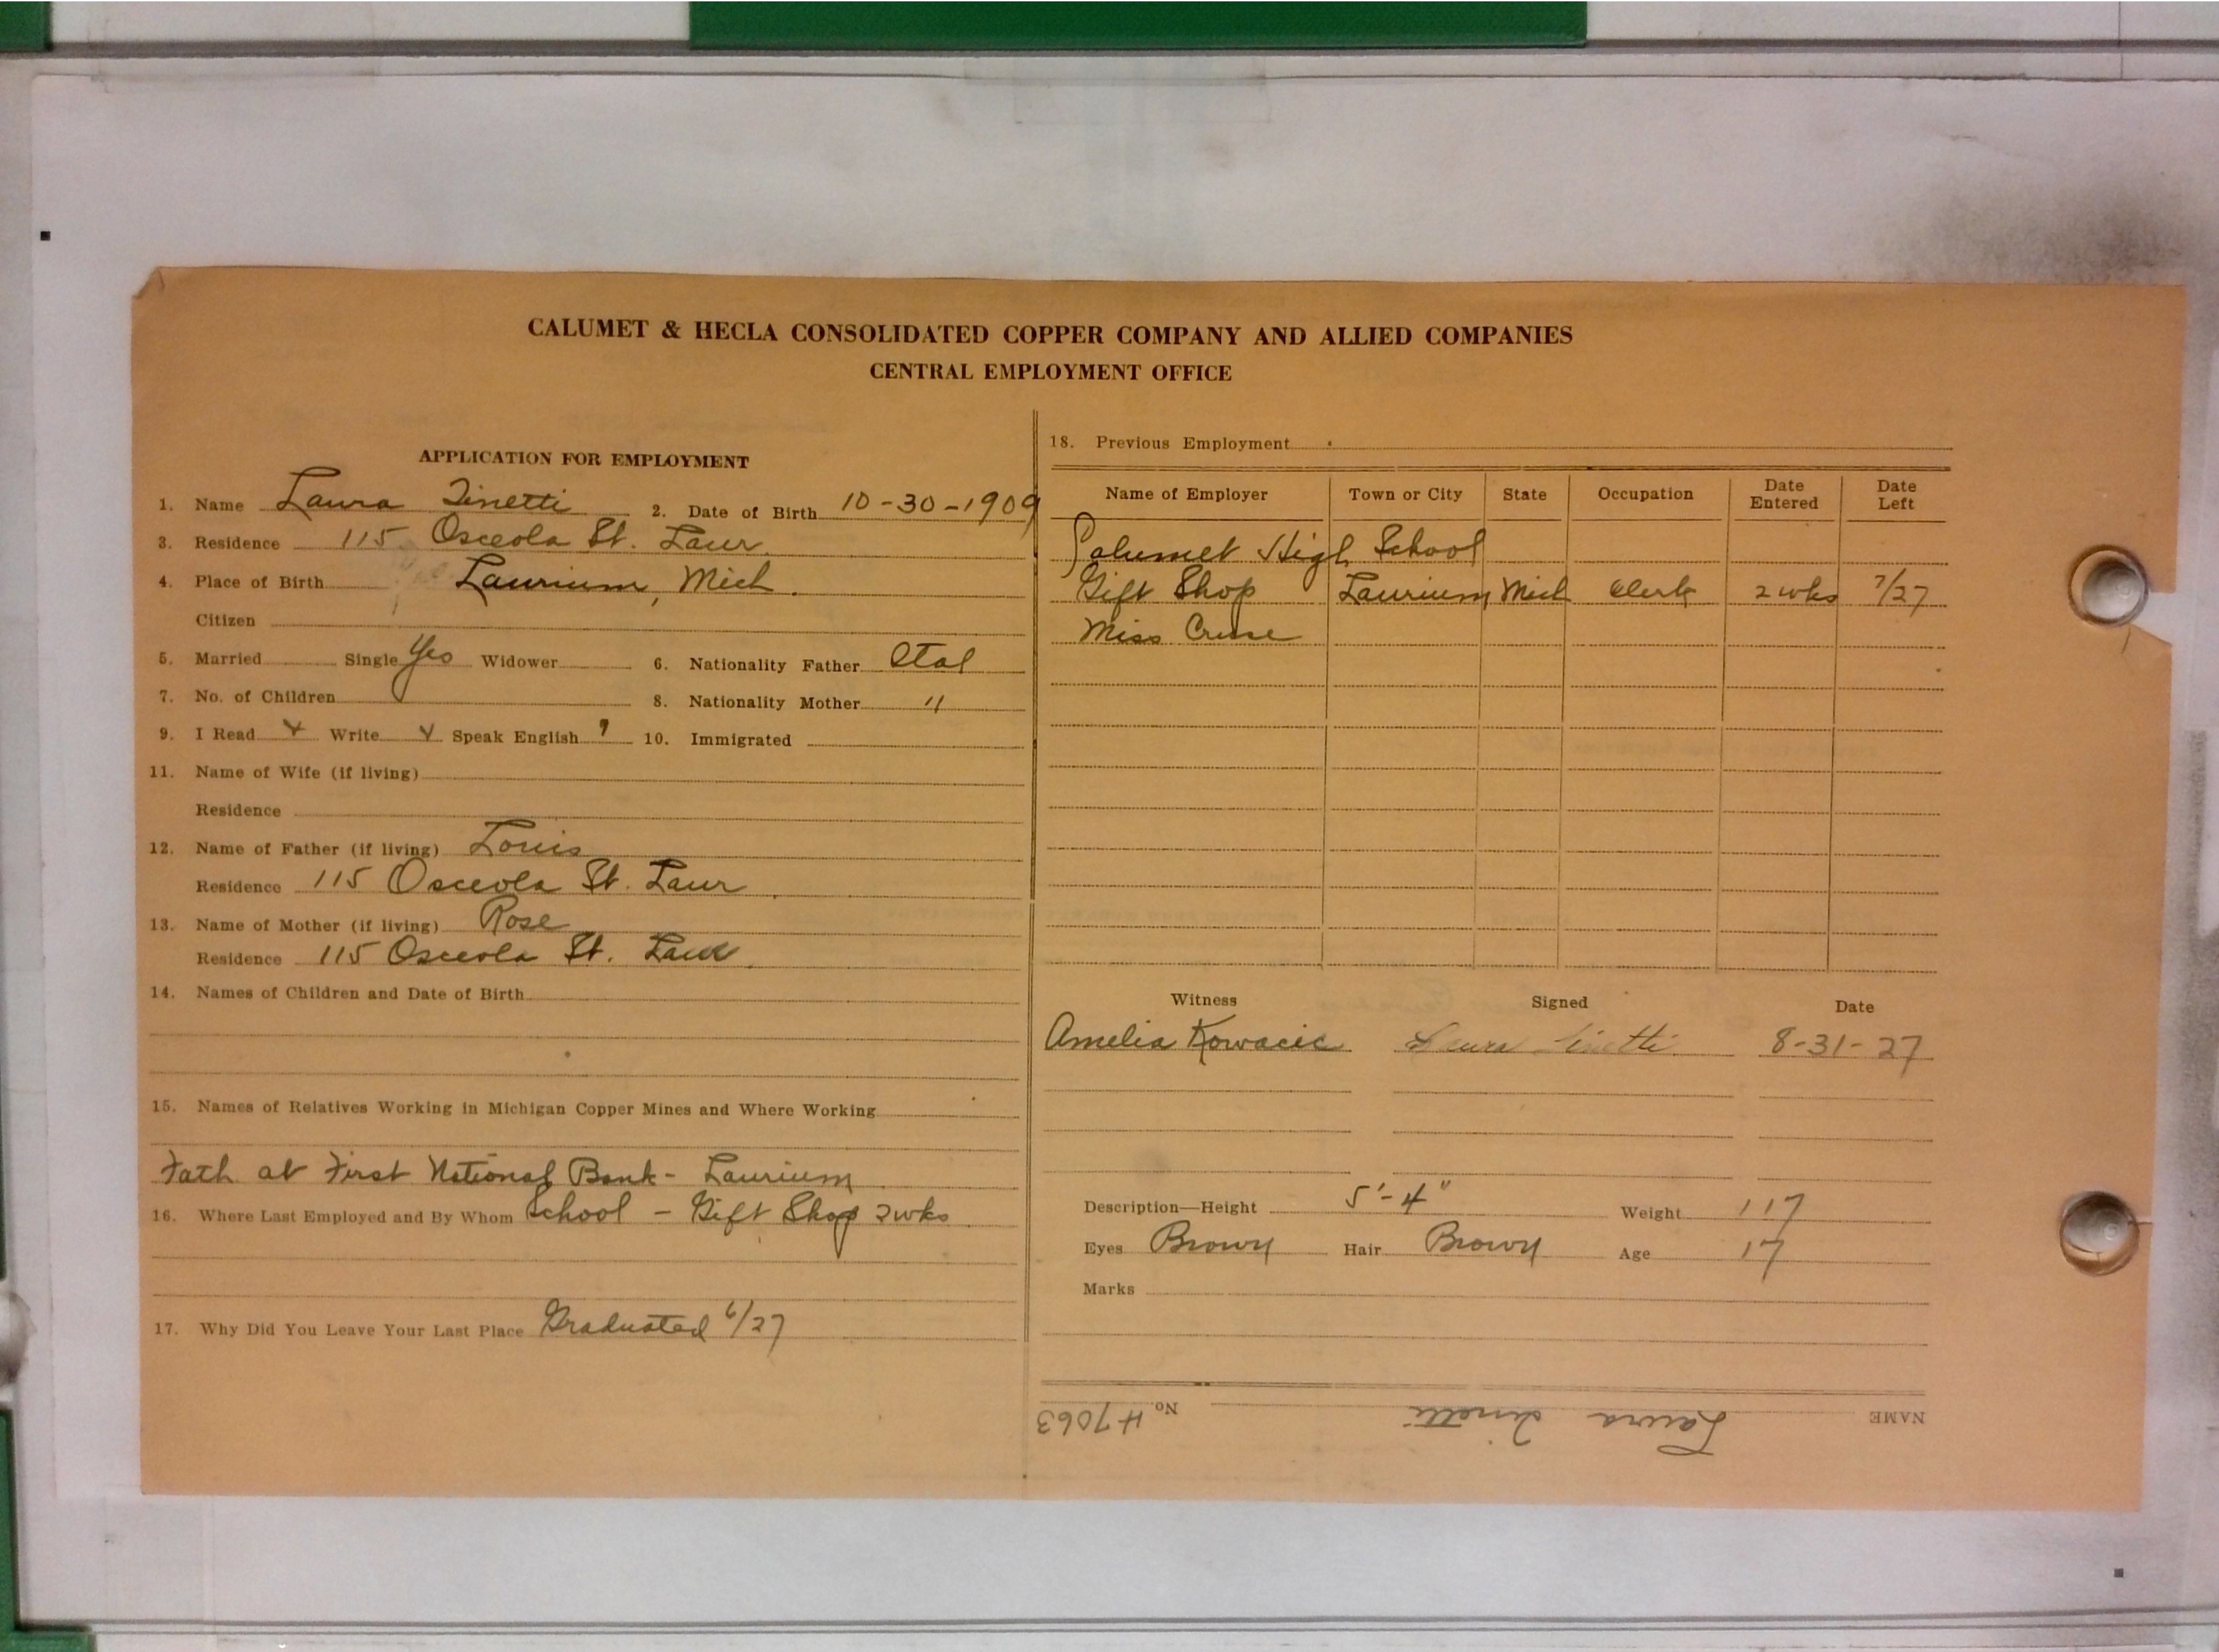 CALUMET & HECLA CONSOLIDATED COPPER COMPANY AND ALLIED COMPANIES
CENTRAL EMPLOYMENT OFFICE
APPLICATION FOR EMPLOYMENT
1. Name Laura Zinetti 2. Date of Birth 10-30-1909
3. Residence 115 Osceola St. Laur.
4. Place of Birth Laurium, Mich.
Citizen
5. Married Single Yes Widower 6. Nationality Father Ital
7. No. of Children 8. Nationality Mother "
9. I Read Write Speak English 10. Immigrated
11. Name of Wife (if living)
Residence
12. Name of Father (if living) Louis
Residence 115 Osceola St. Laur
13. Name of Mother (if living) Rose
Residence 115 Osceola St. Laur
14. Names of Children and Date of Birth
15. Names of Relatives Working in Michigan Copper Mines and Where Working
Fath at First National Bank - Laurium
16. Where Last Employed and By Whom School - Gift Shop 2wks
17. Why Did You Leave Your Last Place Graduated 6/27
18. Previous Employment
Name of Employer Town or City State Occupation Date Entered Date Left
Calumet High School
Gift Shop Laurium Mich Clerk 2 wks 7/27
Miss Cruse
Witness Signed Date
Amelia Kowacic Laura Zinetti 8-31-27
Description—Height 5'-4" Weight 117
Eyes Brown Hair Brown Age 17
Marks
NAME Laura Zinetti No. H7063